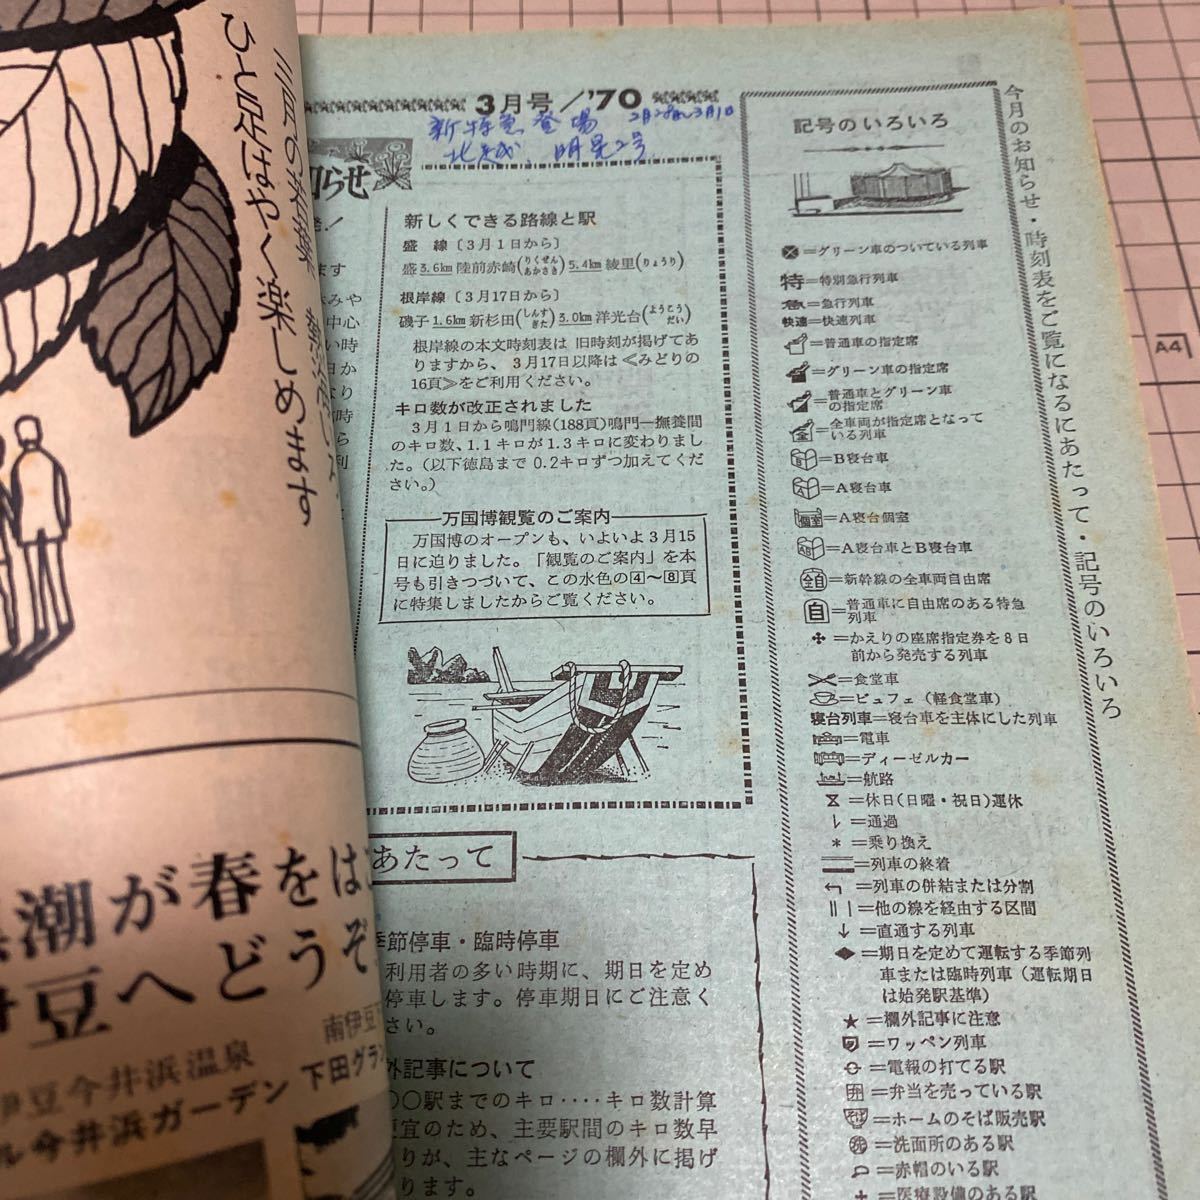 3月号／'70
新特急登場
北越、明星2号
らせ
新しくできる路線と駅
盛　線〔3月1日から〕
盛3.6km陸前赤崎(りくぜんあかさき)5.4km綾里(りょうり)
根岸線〔3月17日から〕
磯子1.6km新杉田(しんすぎた)3.0km洋光台(ようこうだい)
根岸線の本文時刻表は 旧時刻が掲げてあ
りますから、3月17日以降は≪みどりの
16頁≫をご利用ください。
キロ数が改正されました
3月1日から鳴門線(188頁)鳴門―撫養間
のキロ数、1.1キロが1.3キロに変わりまし
た。(以下徳島まで 0.2キロずつ加えてくだ
さい。)
万国博観覧のご案内
万国博のオープンも、いよいよ3月15
日に迫りました。「観覧のご案内」を本
号も引きつづいて、この水色の4〜8頁
に特集しましたからご覧ください。
あたって
季節停車・臨時停車
利用者の多い時期に、期日を定め
停車します。停車期日にご注意く
さい。
外記事について
〇〇駅までのキロ‥‥キロ数計算
便宜のため、主要駅間のキロ数早
りが、主なページの欄外に掲げ
ります。
記号のいろいろ
＝グリーン車のついている列車
特＝特別急行列車
急＝急行列車
快速＝快速列車
＝普通車の指定席
＝グリーン車の指定席
＝普通車とグリーン車
の指定席
＝全車両が指定席となって
いる列車
B＝B寝台車
A＝A寝台車
個室＝A寝台個室
AB＝A寝台車とB寝台車
全自＝新幹線の全車両自由席
自＝普通車に自由席のある特急
列車
＝かえりの座席指定券を8日
前から発売する列車
＝食堂車
＝ビュフェ（軽食堂車）
寝台列車＝寝台車を主体にした列車
＝電車
＝ディーゼルカー
＝航路
＝休日(日曜・祝日)運休
レ＝通過
＊＝乗り換え
＝列車の終着
＝列車の併結または分割
|| |＝他の線を経由する区間
↓＝直通する列車
◆＝期日を定めて運転する季節列
車または臨時列車（運転期日
は始発駅基準）
★＝欄外記事に注意
＝ワッペン列車
＝電報の打てる駅
弁＝弁当を売っている駅
＝ホームのそば販売駅
＝洗面所のある駅
＝赤帽のいる駅
＋＝医療設備のある駅
今月のお知らせ・時刻表をご覧になるにあたって・記号のいろいろ
ひと足はやく楽しめます
潮が春をは
豆へどうぞ
南伊豆
伊豆今井浜温泉
ル今井浜ガーデン 下田グラン
A4